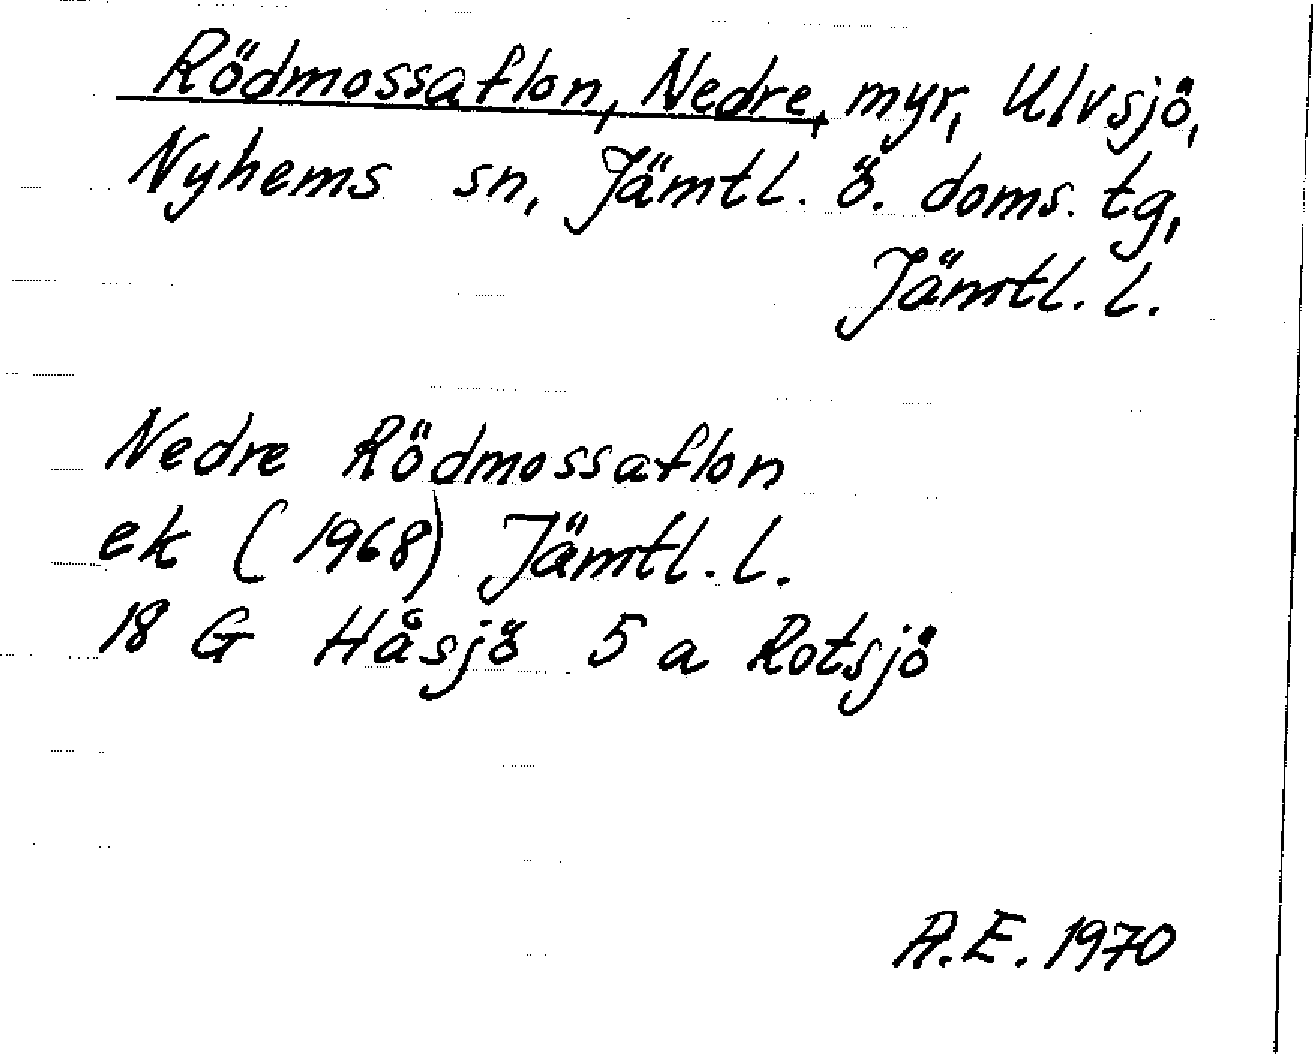 Rödmossaflon, Nedre, myr, Ulvsjö,
Nyhems sn, Jämtl. ö. doms. tg,
Jämtl. l.
Nedre Rödmossaflon
ek (1968) Jämtl. l.
18 G Håsjö 5 a Rotsjö
A.E. 1970